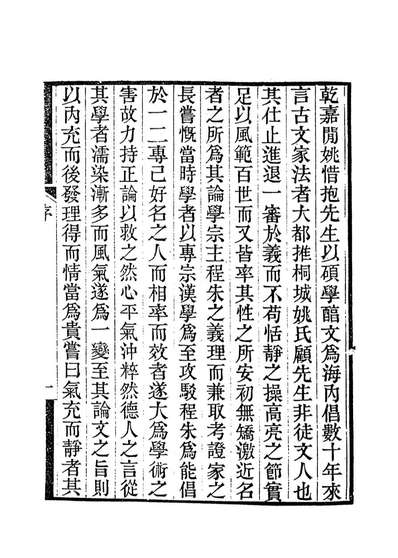 乾嘉閒姚惜抱先生以碩學䛐文爲海內倡數十年來
言古文家法者大都推桐城姚氏顧先生非徒文人也
其仕止進退一審於義而不苟恬靜之操高亮之節實
足以風範百世而又皆率其性之所安初無矯激近名
者之所爲其論學宗主程朱之義理而兼取考證家之
長嘗慨當時學者以專宗漢學爲至攻駁程朱爲能倡
於一二專己好名之人而相率而效者遂大爲學術之
害故力持正論以救之然心平氣沖粹然德人之言從
其學者濡染漸多而風氣遂爲一變至其論文之旨則
以內充而後發理得而情當爲貴嘗曰氣充而靜者其
序
一